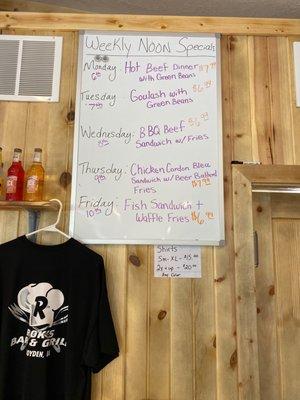 Weekly Noon Specials
Monday: Hot Beef Dinner
6th with Green Beans
Tuesday Goulash with
7th Green Beans
Wednesday: BBQ Beef
8th Sandwich w/ Fries
Thursday: Chicken Cordon Bleu
9th Sandwich w/ Beer Battered
Fries
Friday: Fish Sandwich +
10th Waffle Fries
Shirts
Sm-XL-
2x+up - $20.00
Any Color
R
BAR & GRILL